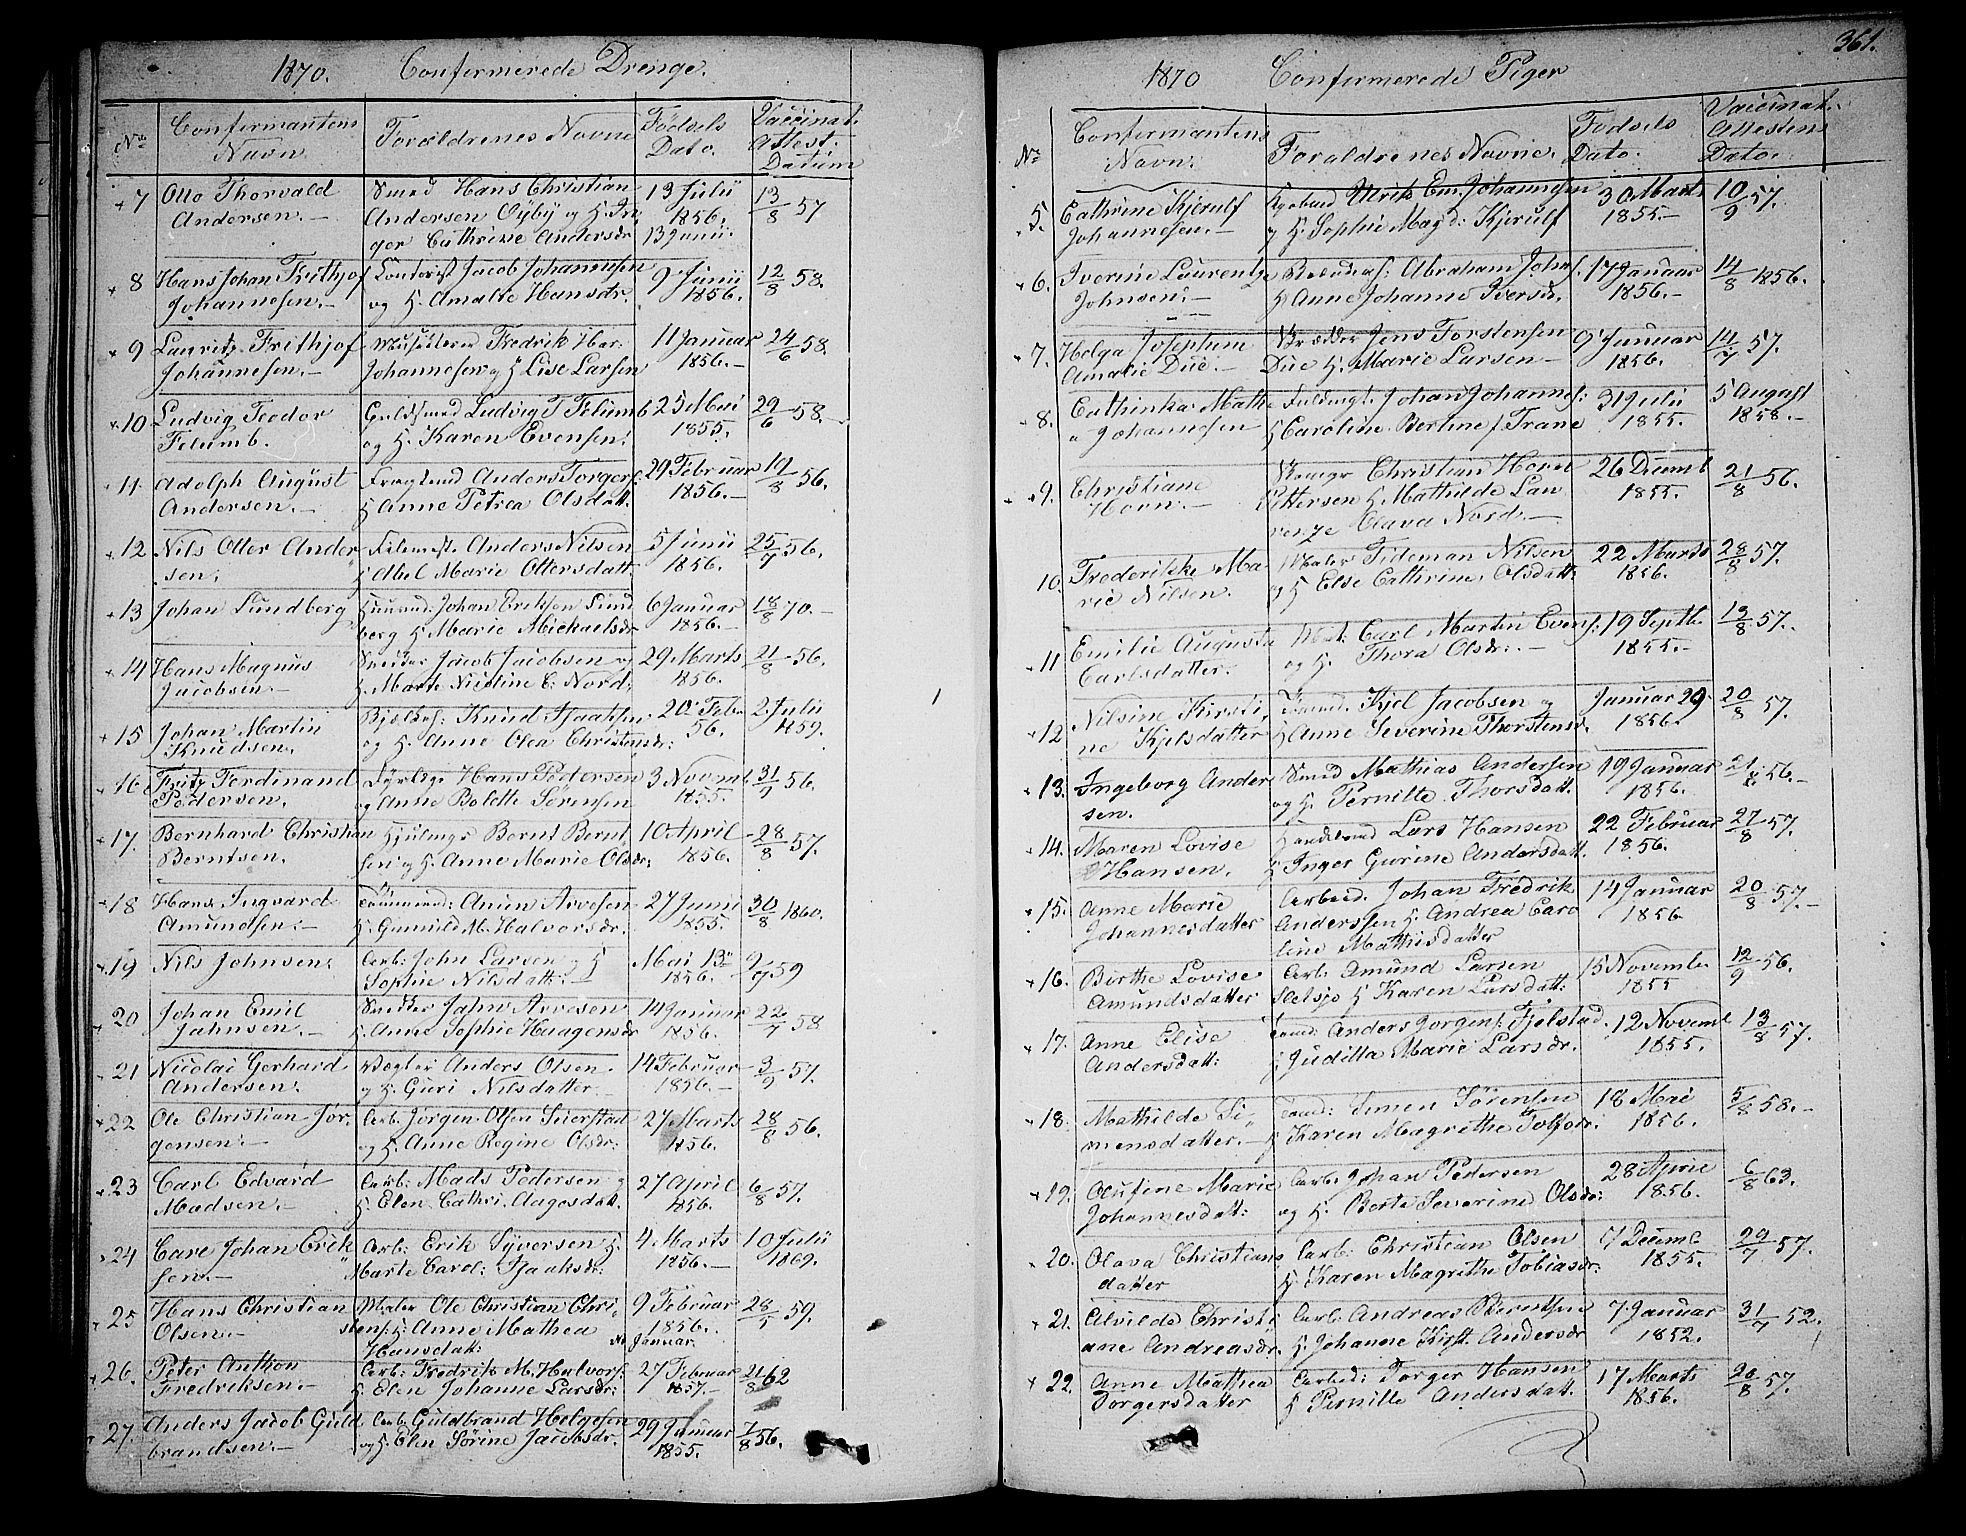 1870. Confirmerede Drenge.
No Confirmantens Navn Forældrenes Navne Fødsels Dato. Vaccinat. Attest: Datum
7 Otto Thorvald Smed Hans Christian 13 Julii 13/8 57
Andersen.- Andersen Øyby og H. In 1856.
ger Cathrine Andersdr 13 Junii.
8 Hans Johan Frithjof Jacob Johannesen 9 Junii 12/8 58.
Johannesen.- og H. Amalie Hansdr. 1856.
9 Lauritz Frithjof Fredrik Har: 11 Januar 24/6 58.
Johannesen.- Johannesen og H Lise Larsen 1856.-
10 Ludvig Teodor Guldsmed Ludvig T. Felumb 25 Mai 29/6 58.-
Felumb. og H. Karen Evensen. 1855.
11. Adolph August Anders Torgers: 29 Februar 19/8 56.
Andersen.- H Anne Petrea Olsdatt. 1856.-
12. Nils Otter Ander Anders Nilsen 5 Junii 25/7 56.
sen. H Abel Marie Ottersdatt: 1856.
13 Johan Lundberg Johan Eriksen Lund 6 Januar 18/8 70.-
berg H Marie Mickaelsdr 1856.-
14 Hans Magnus Snedker Jacob Jacobsen og 29 Marts 21/8 56.
Jacobsen.- H. Marte Nicoline C. Nord: 1856.
15 Johan Martin Knud Isaaksen 20 Feb. 2. Julii
Knudsen. og H. Anne Olea Christensdr: 56. 1859.
16 Fritz Ferdinand Hans Pedersen 3 Novemb. 31/9 56.
Pedersen. og Anne Bolette Sørensen 1855.
17. Bernhard Christian Bernt Bernt 10 April 28/8 57.
Berntsen. sen og H. Anne Marie Olsdr. 1856.
18 Hans Ingvard Arvesen 27 Junii 30/8 1860.
Amundsen.- H. Gunnild M. Halvorsdr. 1855.
19 Nils Johnsen. Arb: John Larsen og H Mai 13de 9/7 59
Sophie Nilsdatt. 1856.
20 Johan Emil Snedker Jahn Arvesen 14 Januar 22/7 58
Jahnsen.- H. Anne Sophie Haagensdr 1856.
21 Nicolai Gerhard Anders Olsen. 14 Februar 3/9 57.
Andersen. og H. Guri Nilsdatter. 1856.-
22 Ole Christian Jør Arb. Jørgen Olsen Seierstad 27 Marts 28/8 56.
gensen.- og H. Anne Regine Olsdr: 1856.
23 Carl Edvard Arb. Mads Pedersen og 27 April 6/8 57.
Madsen.- H. Elen Cathri. Aagesdatt. 1856.
24 Carl Johan Erik Arb: Erik Syversen H. 4 Marts 10 Julii
sen.- Marte Carol: Isaaksdr. 1856.- 1869.
25 Hans Christian Maler Ole Christian Chri 9 Februar 28/5 59.
Olsen.- stens: H. Anne Mathea 1856.
Hansdatt: Januar.
26. Peter Anthon Arb: Fredrik M. Halvors: 27 Februar 21/8 62
Fredriksen.- H. Elen Johanne Larsdr: 1857.-
27. Anders Jacob Guld Arb. Guldbrand Helgesen 29 Januar 7/8 56.
brandsen.- og H. Elen Sørine Jacobsdr. 1855.
361.
1870 Confirmerede Piger
No Confirmantens Navn: Forældrenes Navne. Fødsels Dato. Vaccinat. Attestens Dato.
5. Cathrine Kjerulf Ulrik Em. Johannesen 30 Marts 10/9 57.
Johannesen.- og H. Sophie Magd: Kjerulf 1855.-
6. Iverine Laurentze Abraham Johns. 17 Januar 14/8 1856.
Johnsen.- H Anne Johanne Iversdr. 1856.-
7. Helga Josephine Skrædder Jens Torstensen 9 Januar 14/7 57.
Amalie Due.- Due H. Marie Larsen- 1856.
8. Cathinka Math Johan Johanns: 31 Julii 5 August
a Johannesen H Caroline Bertine f. Trane 1855. 1858.-
9. Christiane Christian Horn 26 Decemb 21/8 56.
Horn.- Pettersen H. Mathilde Lau 1855.
rentze Olava Nord.-
10. Frederikke Ma Maler Tideman Nilsen 22 Marts 28/8 57.
rie Nilsen. og H Else Cathrine Olsdatt: 1856.
11 Emilie Augusta Carl Martin Evens: 19 Septb. 13/8 57.
Carlsdatter. og H. Thora Olsdr.- 1855.-
12 Nilsine Kirsti Kjel Jacobsen og Januar 29. 20/8 57.
ne Kjelsdatter H Anne Severine Thorstensdr. 1856.
13. Ingeborg Ander Smed Mathias Andersen 19 Januar 21/8 56.-
sen. og H. Pernille Thorsdatt. 1856.
14. Maren Lovise Lars Hansen 22 Februar 27/8 57.
Hansen. H Inger Gurine Andersdatt. 1856.
15. Anne Marie Arbeid. Johan Fredrik 14 Januar 20/8 57.-
Johannesdatter Anderssen H. Andrea Caro 1856
line Mathisdatter
16. Birthe Lovise Arb. Amund Larsen 15 Novembr. 12/9 56.
Amundsdatter H Karen Larsdatt: 1855
17. Anne Elise Anders Jørgens: Fjelstad. 12 Novemb 13/8 57.
Andersdatt: H Juditta Marie Larsdr. 1855.
18. Mathilde Si Simen Sørensen 18 Mai 5/8 58.-
mensdatter.- H Karen Magrethe Tolfsdr. 1856.
19. Olufine Marie Arb. Johan Pedersen 28 April 6/8 63.
Johannesdatt: og H. Berte Severine Olsdr: 1856.
20. Olava Christians Arb: Christian Olsen 7 Decemb 29/7 57.
datter H. Karen Magrethe Tobiasdr. 1855.
21. Alvilde Christi Arb. Andreas Berntsen 7. Januar 31/7 52.
ane Andreasdr. H. Johanne Kirst. Andersdr 1852.
22. Anne Mathea Arbeid: Torger Hansen 17 Marts 20/8 57.
Torgersdatter H Pernille Andersdatt. 1856.